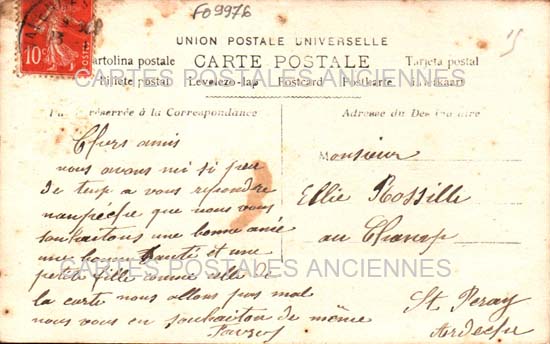 FO9976
10c
UNION POSTALE UNIVERSELLE
Cartolina postale CARTE POSTALE Tarjeta postal
CARTES POSTALES ANCIENNES
Biljete postal Levelezo-lap Postcard Postkarte
réservée à la Correspondance
Adresse du Destinataire
Chers amis
nous avons mi si peu
de temp a vous repondre
nanpéche que nous vous
souhaitons une bonne anée
une bonne santé et une
petite fille comme celle de
la carte nous allons pas mal
nous vous en souhaiton de même
Monsieur
Ellie Rossille
au Champ
St. Peray
Ardeche
CARTES POSTALES ANCIENNES